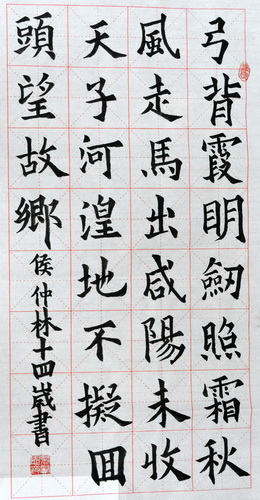 弓背霞明劒照霜秋
風走馬出咸陽未收
天子河湟地不擬回
頭望故鄉
侯仲林十四歲書